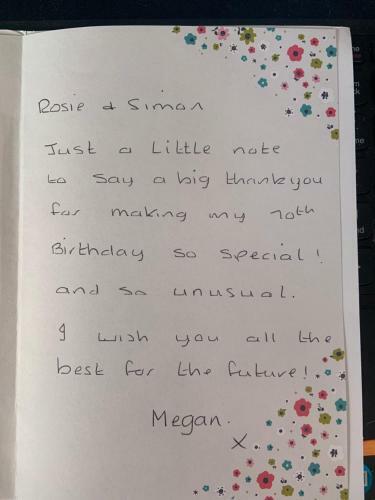 Rosie & Simon
Just a Little note
to say a big thankyou
for making my 70th
Birthday so special!
and so unusual.
I wish you all the
best for the future!
Megan.
X